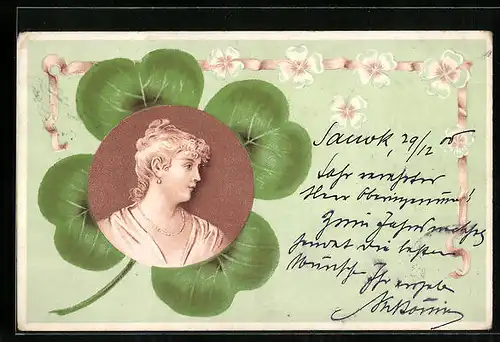 Sanok, 29/12 00
Sehr verehrter
Herr Oberingenieur!
Zum Jahreswechsel
sendet die besten
Wünsche Ihr ergeb.